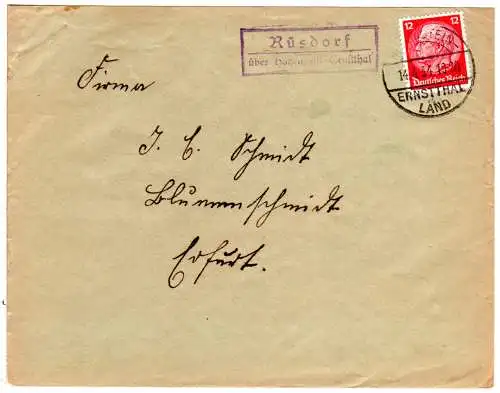 Rüsdorf
über Hohenstein-Ernstthal
12 12
Deutsches Reich
14.
ERNSTTHAL
LAND
Firma
J. C. Schmidt
Blumenschmidt
Erfurt.